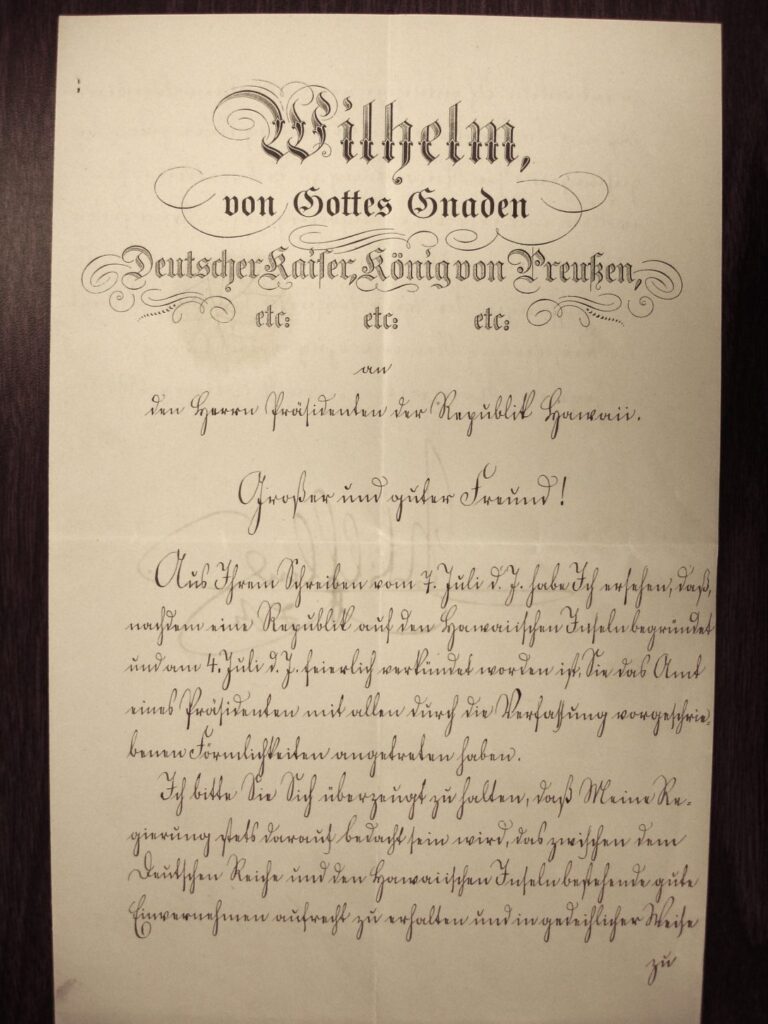 Wilhelm,
von Gottes Gnaden
Deutscher Kaiser, König von Preußen,
etc: etc: etc:
an
den Herrn Präsidenten der Republik Hawaii.
Großer und guter Freund!
Aus Ihrem Schreiben vom 7. Juli d. J. habe Ich ersehen, daß,
nachdem eine Republik auf den Hawaiischen Inseln begründet
und am 4. Juli d. J. feierlich verkündet worden ist, Sie das Amt
eines Präsidenten mit allen durch die Verfassung vorgeschrie-
benen Förmlichkeiten angetreten haben.
Ich bitte Sie Sich überzeugt zu halten, daß Meine Re-
gierung stets darauf bedacht sein wird, das zwischen dem
Deutschen Reiche und den Hawaiischen Inseln bestehende gute
Einvernehmen aufrecht zu erhalten und in gedeihlicher Weise
zu